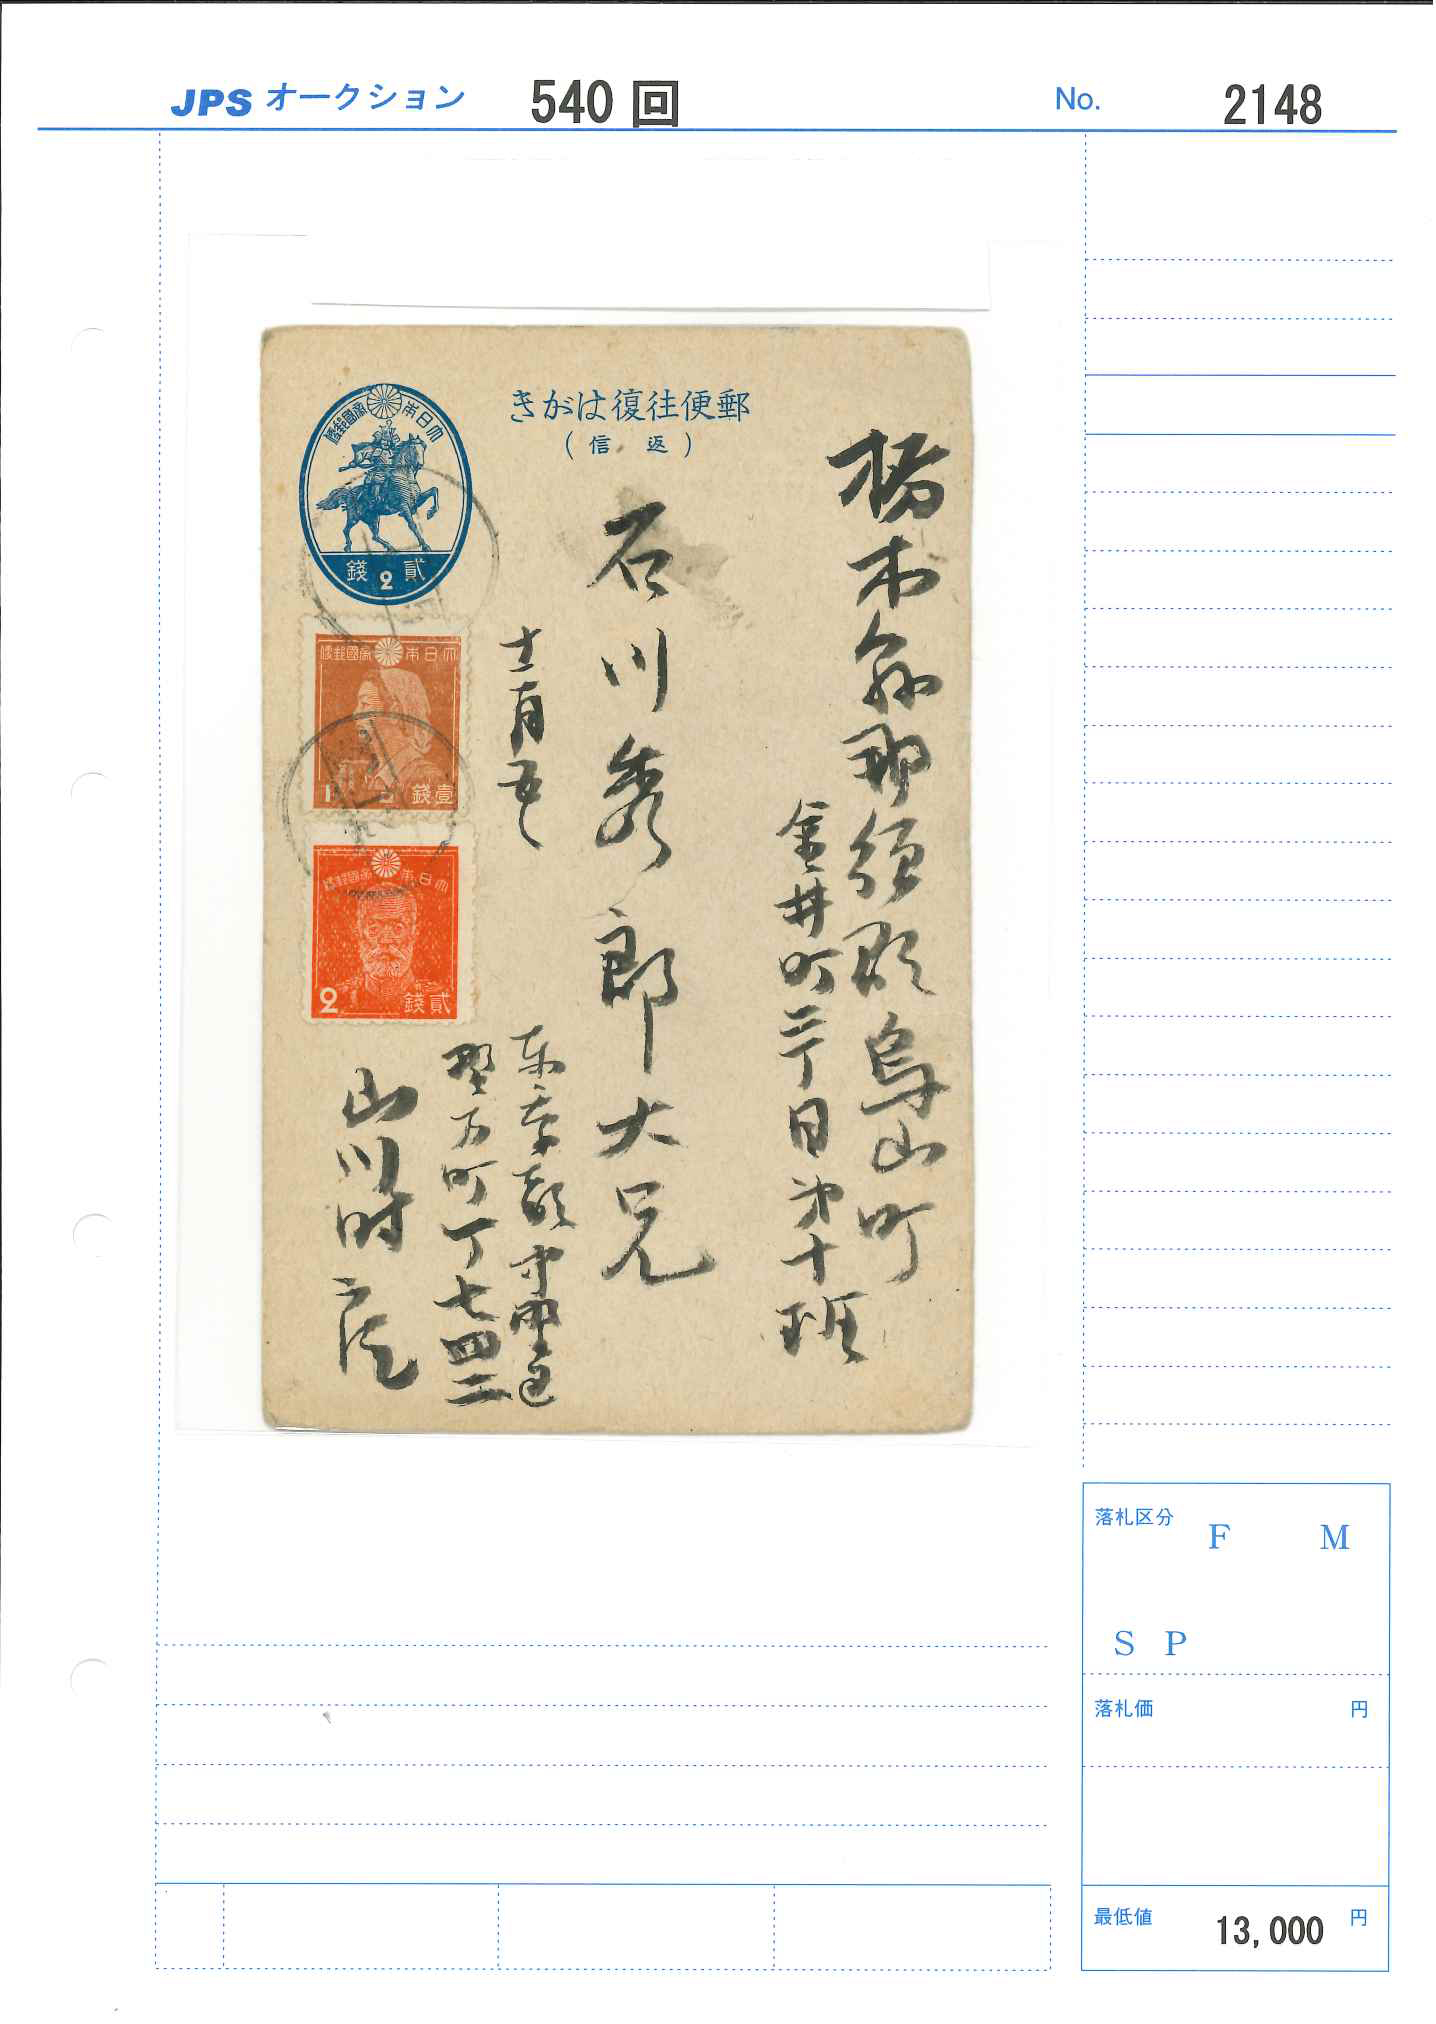 JPS オークション 540 回 No. 2148
郵便往復はがき
(返信)
大日本帝國郵便
貳錢
2
大日本帝國郵便
壹錢
1
大日本帝國郵便
貳錢
2
栃木縣那須郡烏山町
金井町二丁目第十班
石川秀郎大兄
十二月五
東京都中野区
野方町一丁七四二
山川時
落札区分 F M
S P
落札価 円
最低値 13,000 円